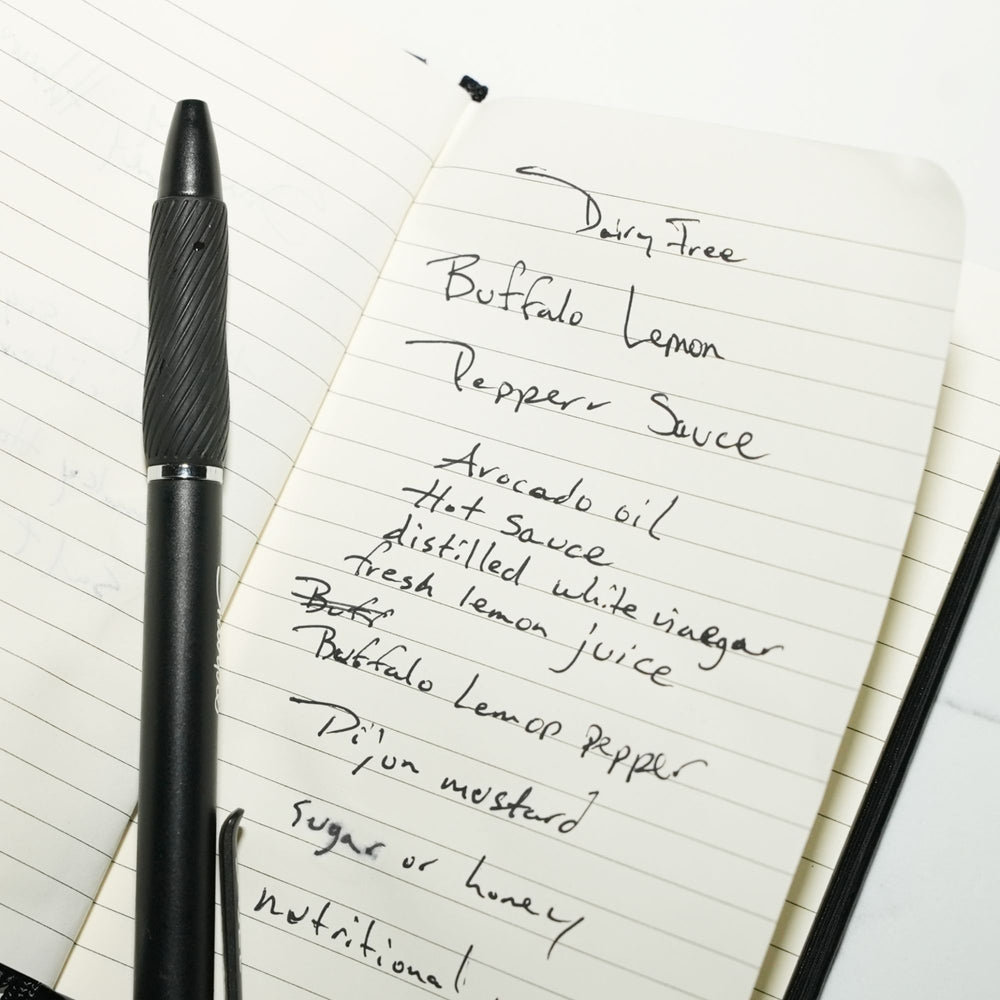 Dairy Free
Buffalo Lemon
Pepperr Sauce
Avocado oil
Hot Sauce
distilled white vinegar
fresh lemon juice
Buff
Buffalo Lemon Pepper
Dijon mustard
sugar or honey
nutritional